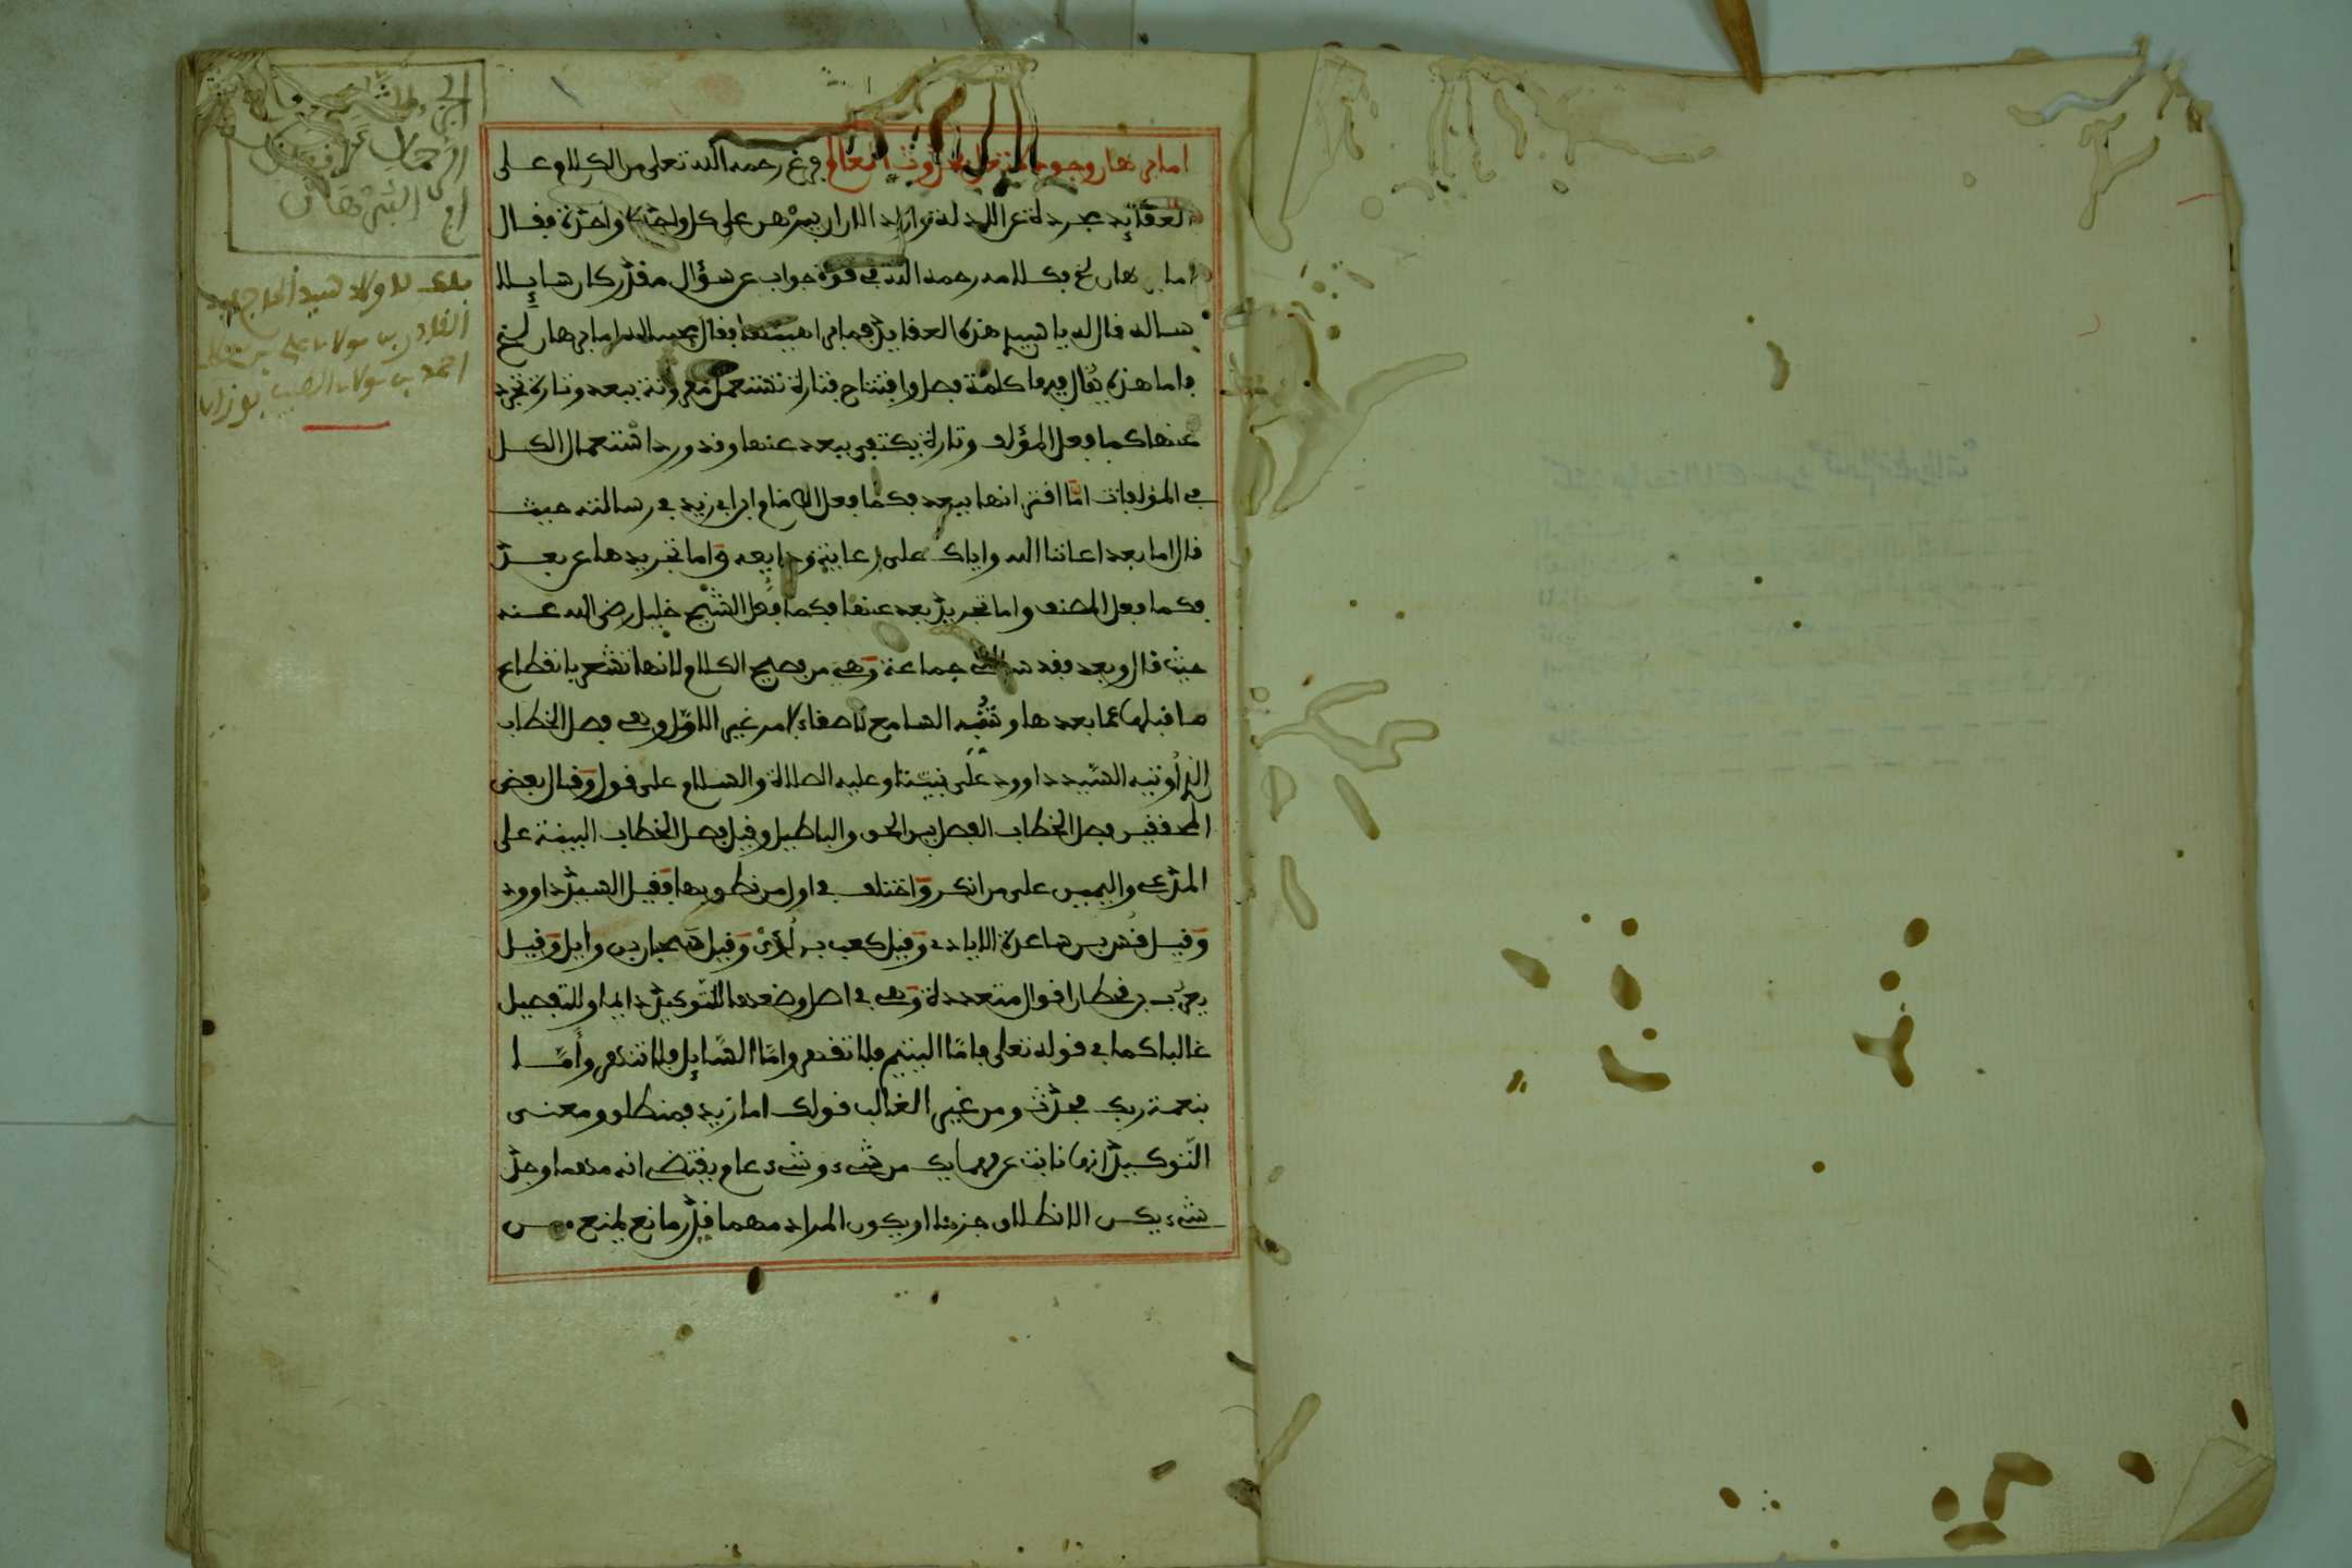 اما برهان وجوده تعالى فحدوث العالم فرغ رحمه الله تعلى من الكلام على
العقائد مجردة عن الادلة واراد الان ان يبرهن على كل واحدة واحدة فقال
اما برهان الخ فكلامه رحمه الله في قوة جواب عن سؤال مقدر كان سايلا
ساله قال له يا سيدي هذه العقايد فما براهينها فقال مجيبا له اما برهان الخ
واما هذه يقال فيها كلمة فصل وافتتاح فتارة تستعمل مقرونة ببعد وتارة تجرد
عنها كما فعل المؤلف وتارة يكتفى ببعد عنها وقد ورد استعمال الكل
في المؤلفات امّا اقترانها ببعد فكما فعل الامام ابن ابي زيد في رسالته حيث
قال اما بعد اعاننا الله واياك على رعاية ودايعه واما تجريدها عن بعد
فكما فعل المصنف واما تجريد بعد عنها فكما فعل الشيخ خليل رضي الله عنه
حيث قال وبعد فقد سالني جماعة وهي من فصيح الكلام لانها تشعر بانقطاع
ما قبلها عما بعدها وتنبه السامع للاصغاء لامر غير الاول وهي فصل الخطاب
الذي أوتيه السيد داوود على نبينا وعليه الصلاة والسلام على قول وقال بعض
المحققين فصل الخطاب الفصل بين الحق والباطل وقيل فصل الخطاب البينة على
المدعي واليمين على من انكر واختلف في اول من نطق بها فقيل السيد داوود
وقيل قس بن ساعدة الايادي وقيل كعب بن لؤي وقيل سحبان بن وايل وقيل
يعرب بن قحطان اقوال متعددة وهي في اصل وضعها للتوكيد دايما وللتفصيل
غالبا كما في قوله تعلى فامّا اليتيم فلا تقهر وامّا السّايل فلا تنهر وأمّا
بنعمة ربك فحدّث ومن غير الغالب قولك اما زيد فمنطلق ومعنى
التّوكيد انها نابت عن مهما يك من شيء وشيء عام يقتضي انه مهما وجد
شيء يكن الانطلاق جزما او يكون المراد مهما قدّر مانع يمنع من
ملك لاولاد سيد الحاج عبد
القادر بن مولاي علي بن مولاي
احمد بن مولاي الطيب بوزان